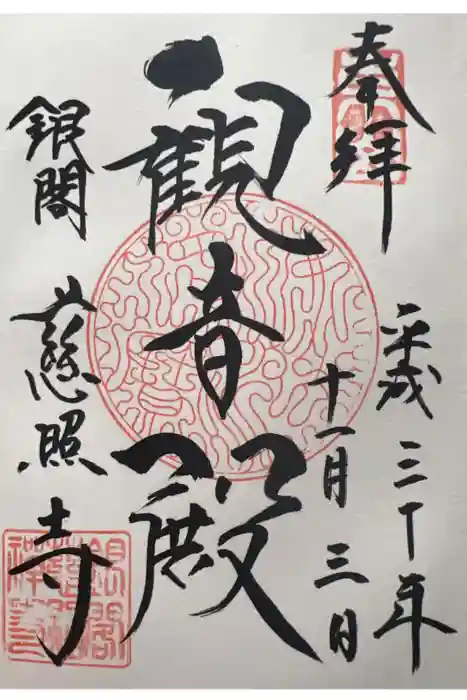 奉拝
平成三十年
十一月三日
観音殿
銀閣
慈照寺